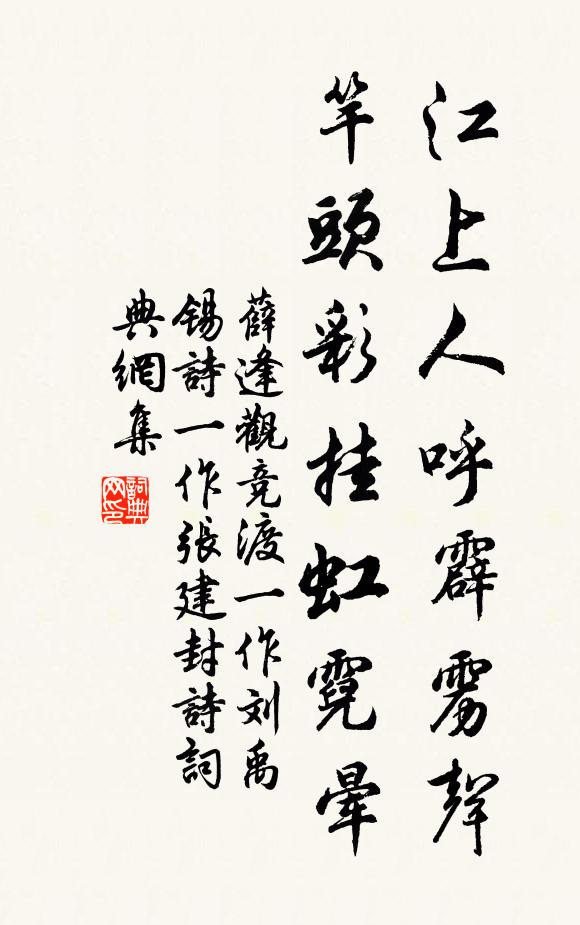 江上人呼霹雳聲
竿頭彩挂虹霓暈
薛逢觀竞渡一作刘禹
锡詩一作張建封詩詞
典網集
詞典
网印